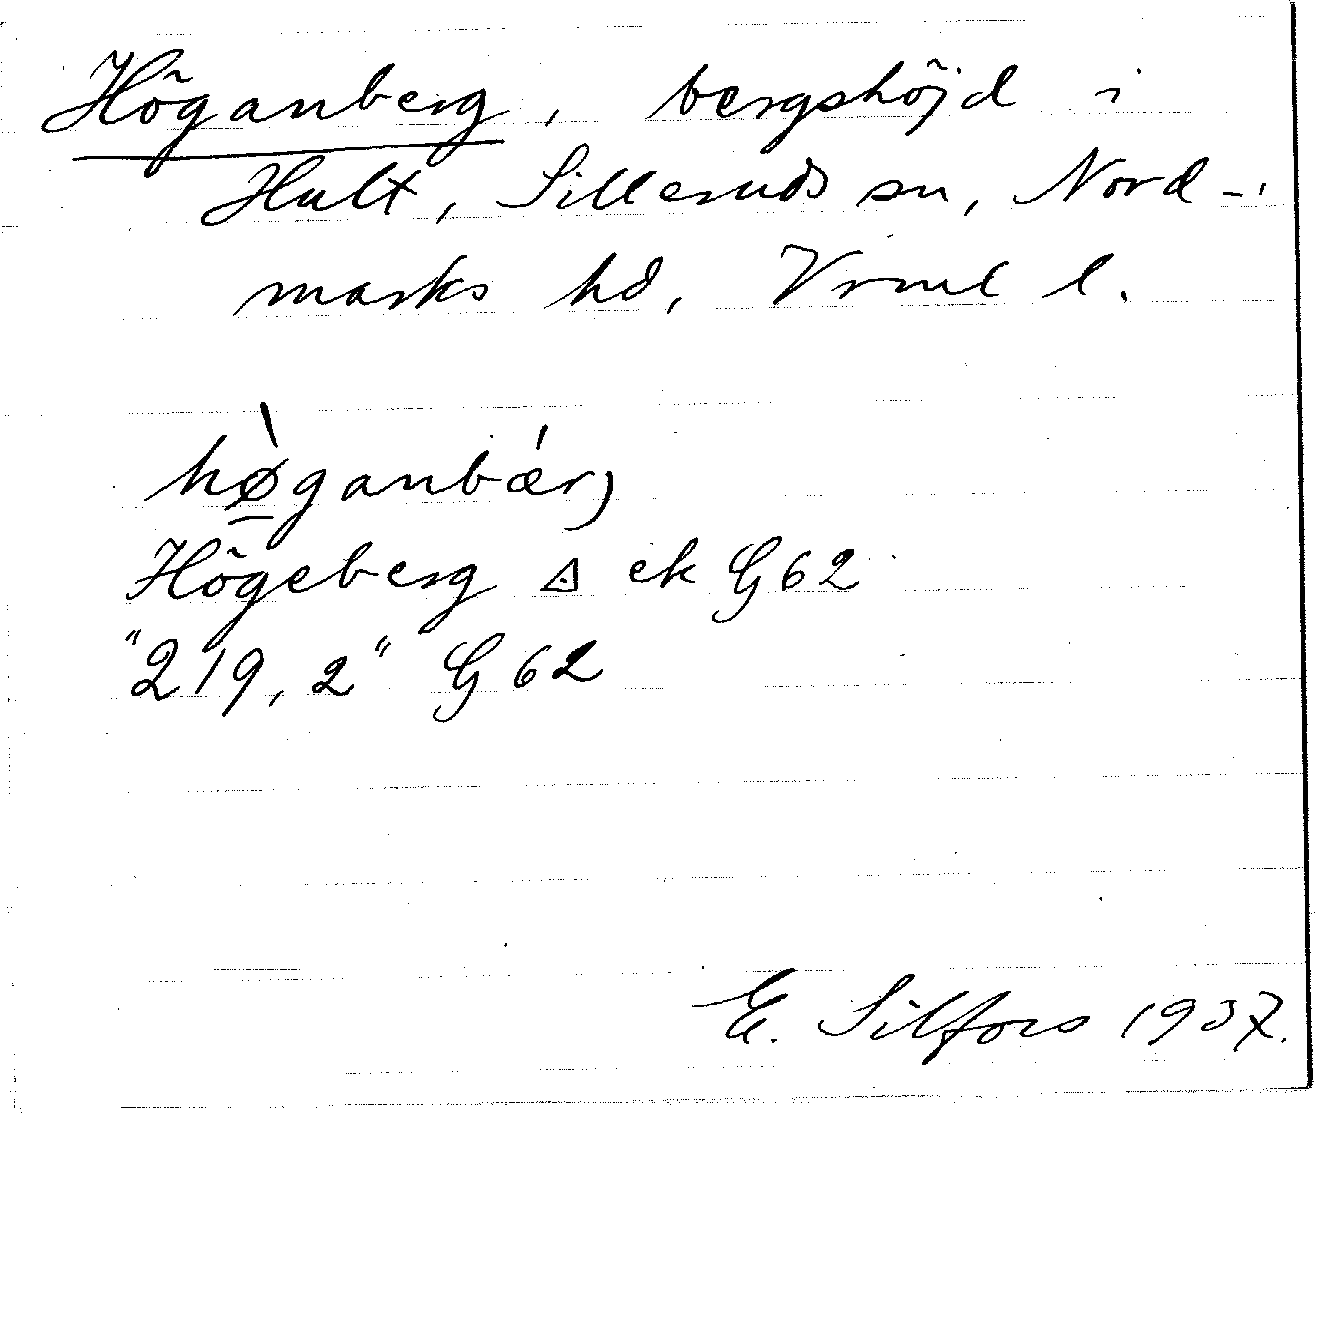 Höganberg, bergshöjd i
Hult, Silleruds sn, Nord-
marks hd, Vrml l.
hø̱̀ganbǽrj
Högeberg ◬ ek G62
"219,2" G62
E. Silfors 1937.